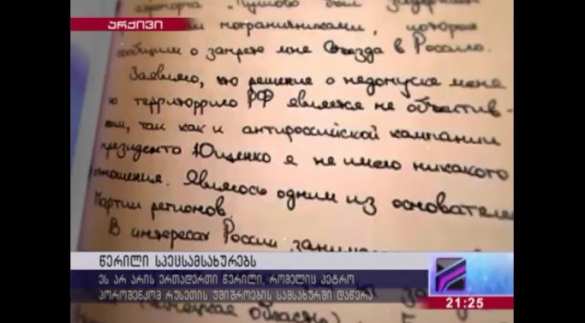 არქივი
был задержан
пограничниками, которые
сообщили о запрете мне въезда в Россию.
Заявляю, что решение о недопуске меня
территоррию РФ является не объектив-
ным, так как к антироссийской кампании
президента Ющенко я не имею никакого
отношения. Являюсь одним из основателей
Партии регионов.
В интересах России
წერილი სპეცსამსახურებს
ეს არ არის ერთადერთი წერილი, რომელიც პეტრო
პოროშენკომ რუსეთის უშიშროების სამსახურში დაწერა
область)
21:25